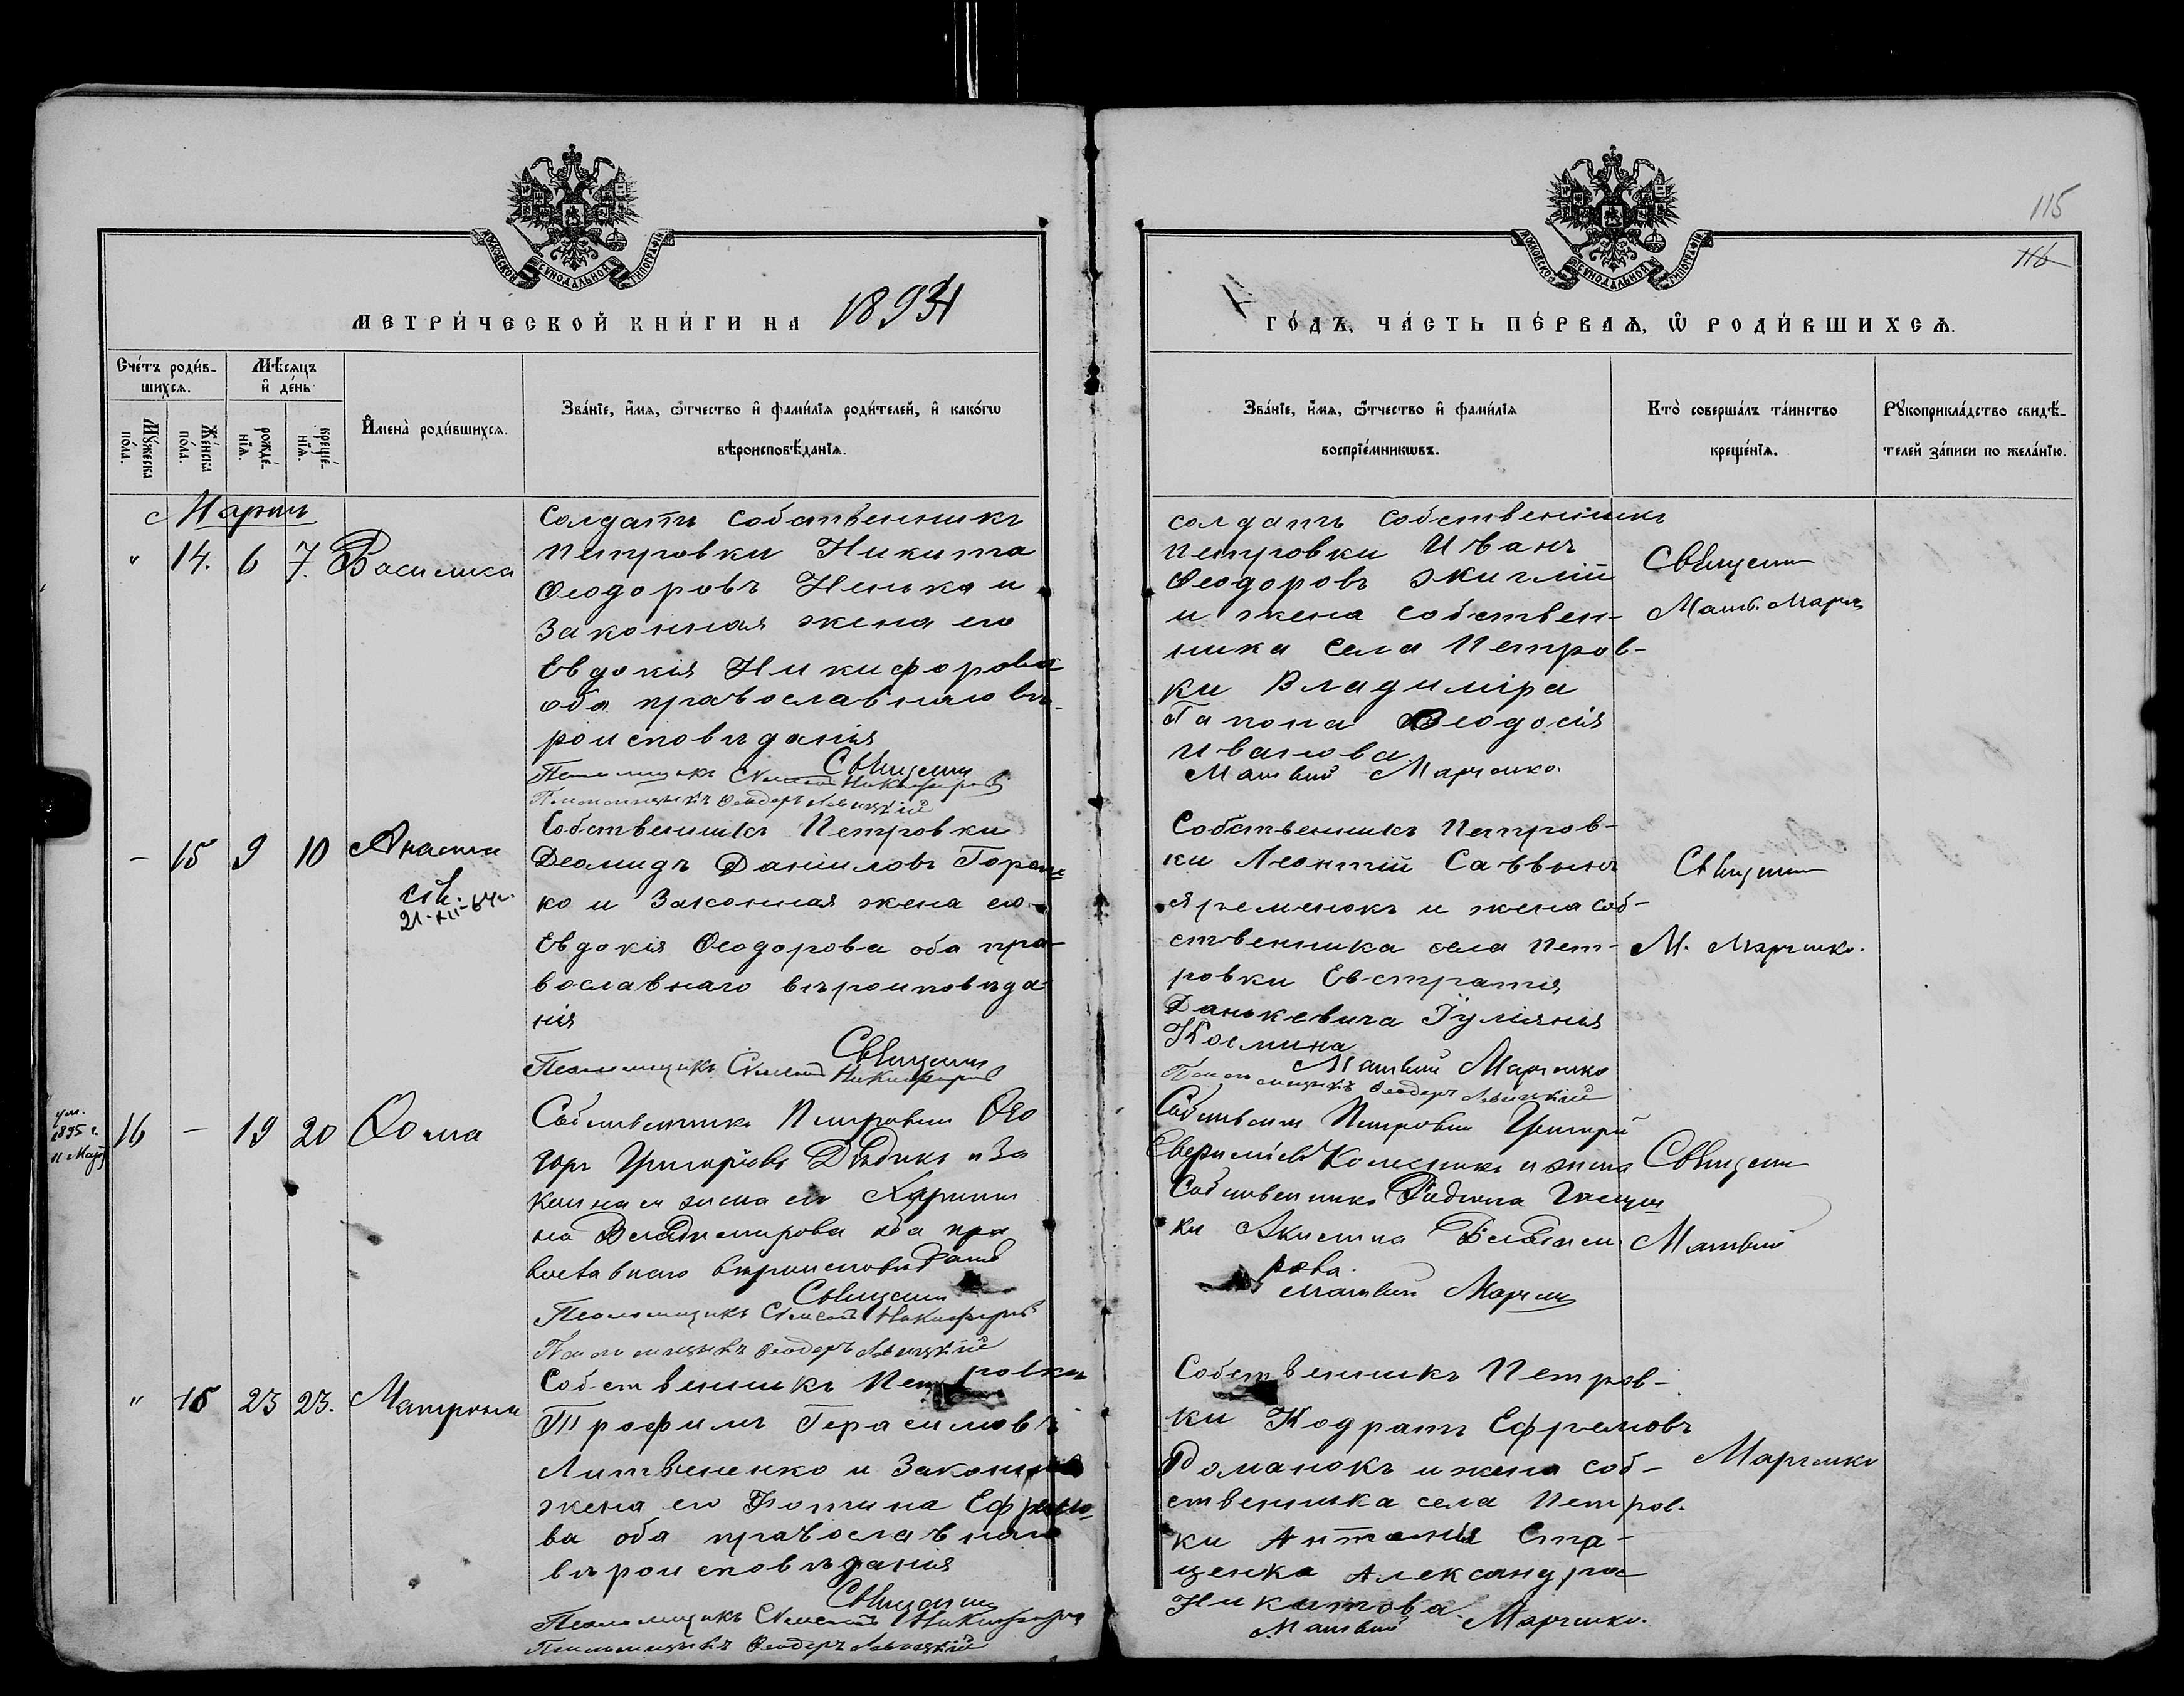 115
116
МОСКОВСКОЙ СѴНОДАЛЬНОЙ ТИПОГРАФІИ
МОСКОВСКОЙ СѴНОДАЛЬНОЙ ТИПОГРАФІИ
МЕТРИ́ЧЕСКОЙ КНИ́ГИ НА 1893
ГО́ДЪ, ЧА́СТЬ ПЕ́РВАѦ, Ѡ҆ РОДИ́ВШИХСѦ.
Сче́тъ роди́в-
шихсѧ.
Мꙋ́жеска
по́ла.
Же́нска
по́ла.
Мѣ́сѧцъ
и҆ де́нь
рожде́-
нїѧ.
креще́-
нїѧ.
И҆мена̀ роди́вшихсѧ.
Зва́нїе, и҆́мѧ, ѻ҆́тчество и҆ фами́лїѧ роди́телей, и҆ како́гѡ
вѣроисповѣ́данїѧ.
Зва́нїе, и҆́мѧ, ѻ҆́тчество и҆ фами́лїѧ
воспрїе́мникѡвъ.
Кто̀ соверша́лъ та́инство
креще́нїѧ.
Рꙋкоприкла́дство свидѣ́-
телей за́писи по жела́нїю.
Мартъ
" 14. 6 7. Василиса
Солдатъ собственникъ
Петровки Никита
Ѳеодоровъ Ненька и
законная жена его
Евдокія Никифорова
оба православнаго вѣ-
роисповѣданія
Священ
Псаломщикъ Никифоровъ
Псаломщикъ Ѳеодоръ Левицкій
солдатъ собственникъ
Петровки Иванъ
Ѳеодоровъ
и жена собствен-
ника села Петров-
ки Владиміра
Гапона Ѳеодосія
Иванова.
Матвий Марченко.
Священ
Матв. Марч
- 15 9 10 Анаста
сія.
21-XII-64г.
Собственникъ Петровки
Деомидъ Даніиловъ Горен-
ко и законная жена его
Евдокія Ѳеодорова оба пра-
вославнаго вѣроисповѣда-
нія
Священ
Псаломщикъ Никифоровъ
Собственникъ Петров-
ки Леонтій Саввинъ
Яременокъ и жена соб-
ственника села Пет-
ровки Евстратія
Данькевича Іуліянія
Космина
Матвий Марченко
Псаломщикъ Ѳеодоръ Левицкій
Священ
М. Марченко.
ум.
1895 г.
11 Мая
16 - 19 20 Ѳома
Собственникъ Петровки Ѳео
доръ Григоріевъ Дѣдикъ и за
конная жена его Харити
на Владимирова оба пра
вославнаго вѣроисповѣданія
Священ
Псаломщикъ Никифоровъ
Псаломщикъ Ѳеодоръ Левицкій
Собствен Петровки Григорій
Колесникъ и жена
Собственника
ки Акилина
рова.
Матвий Марчен
Священ
Матвий
" 16 23 23. Матрона
Собственникъ Петровки
Трофимъ Герасимовъ
Литвененко и законная
жена его Фотина Ефремо-
ва оба православнаго
вѣроисповѣданія
Священ
Псаломщикъ Никифоровъ
Псаломщикъ Ѳеодоръ Левицкій
Собственникъ Петров-
ки Кодратъ Ефремовъ
Романокъ и жена соб-
ственника села Петров-
ки Антонія Ста-
ценка Александра
Никитова.
Матвий Марченко.
Марченко